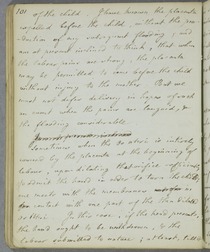 101
of the child. I have known the placenta
expelled before the child, without the pro-
duction of any subsequent flooding; and
am at present inclined to think, that when
the labour pains are strong, the placenta
may be permitted to come before the child
without injury to the mother. But we
must not defer delivery in hopes of
when the pains are languid, &
the flooding considerable.
Sometimes when the os uteri is entirely
covered by the placenta at the beginning of
labour, upon dilating that orifice sufficiently
to admit the hand in order to turn the child,
we meet with the membranes
contact with one part of the
os uteri. In this case, if the head presents,
the hand ought to be withdrawn, & the
labour submitted to nature;